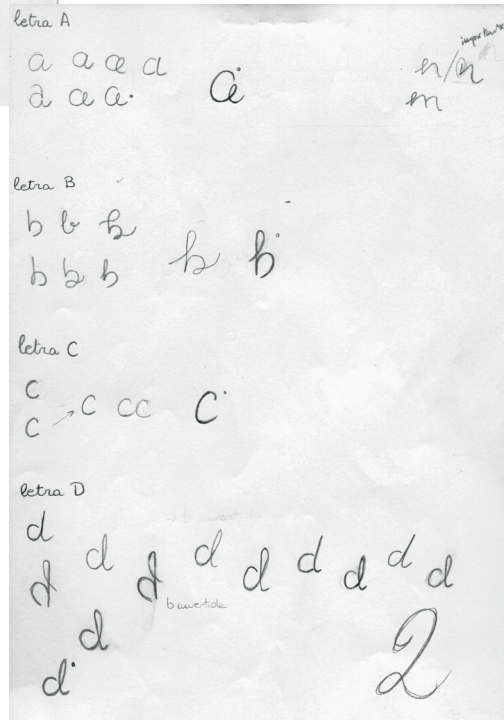 letra A
a a a a
a a a a
n/n
m
letra B
b b b
b b b b b
letra C
C
C → C CC C
letra D
d
d d d d d d d d d
d
d
2